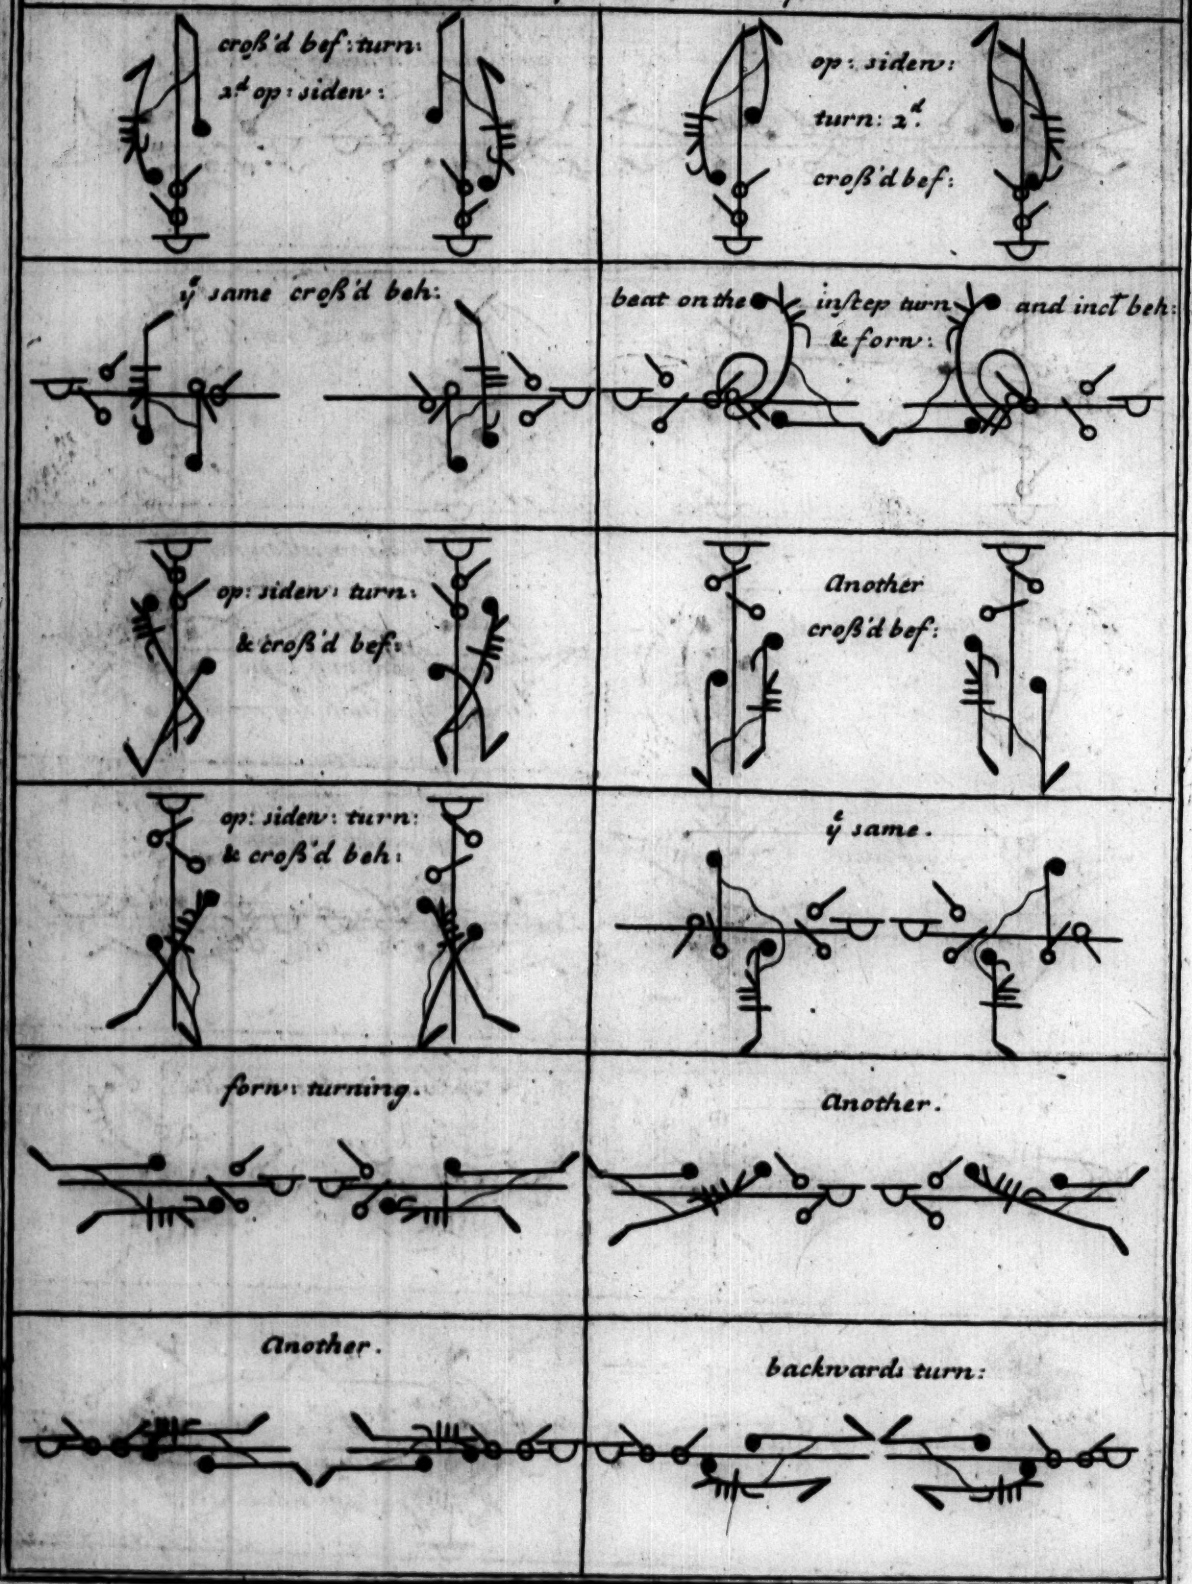 croß'd bef: turn:
2.d op: siden:
op: siden:
turn: 2d.
croß'd bef:
ye same croß'd beh:
beat on the instep turn and incl beh:
& forw:
op: siden: turn:
& croß'd bef:
Another
croß'd bef:
op: siden: turn:
& croß'd beh:
ye same.
forw: turning.
Another.
Another.
backwards turn: